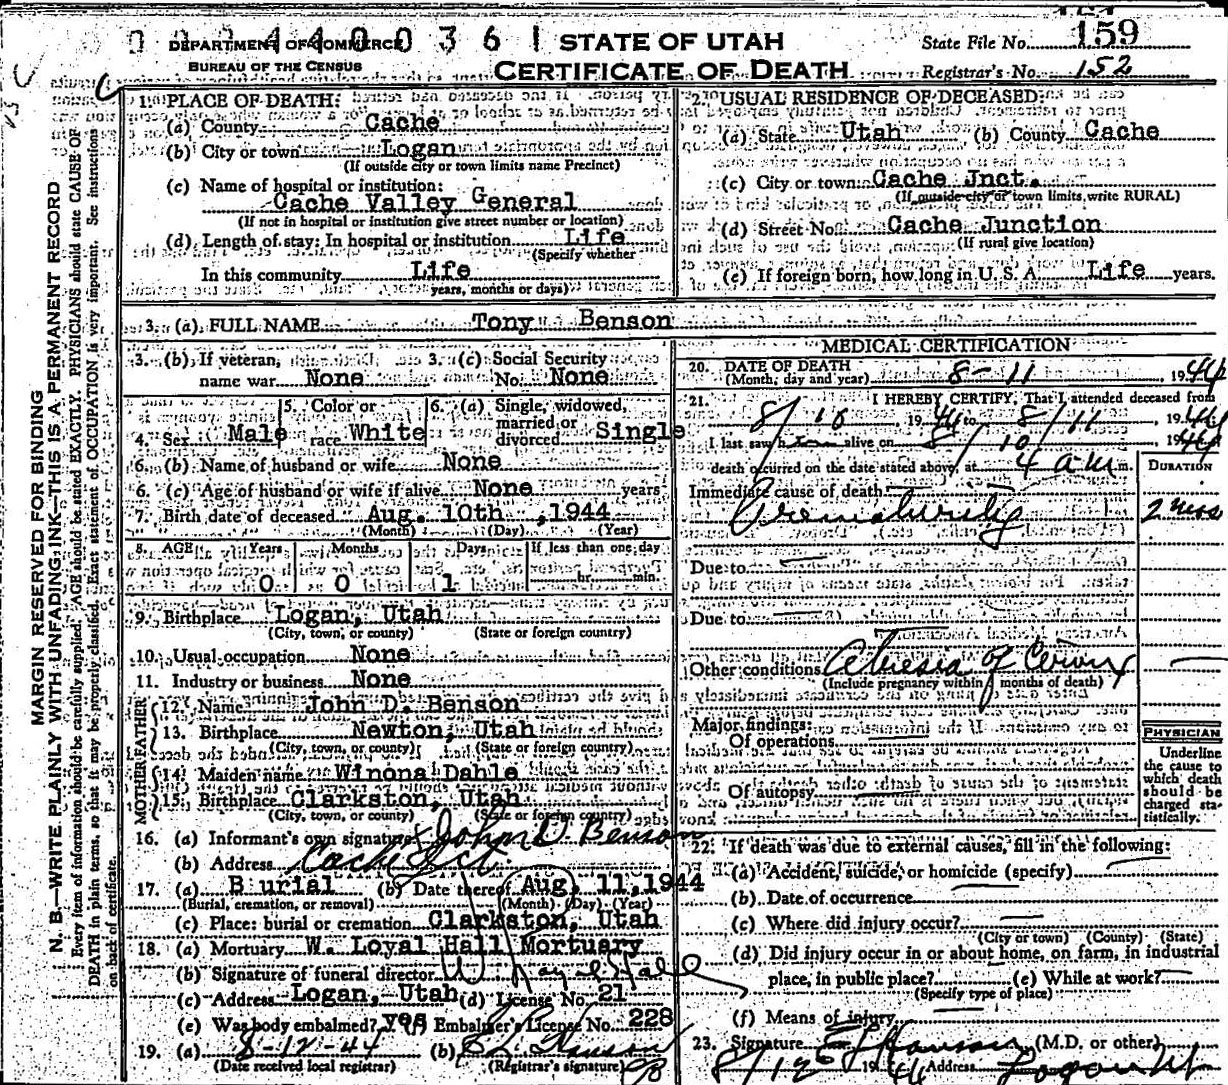 0 0 4 4 0 0 3 6 1
DEPARTMENT OF COMMERCE
BUREAU OF THE CENSUS
STATE OF UTAH
CERTIFICATE OF DEATH
State File No. 159
Registrar's No. 152
MARGIN RESERVED FOR BINDING
N. B.—WRITE PLAINLY WITH UNFADING INK—THIS IS A PERMANENT RECORD
Every item of information should be carefully supplied. AGE should be stated EXACTLY. PHYSICIANS should state CAUSE OF
DEATH in plain terms, so that it may be properly classified. Exact statement of OCCUPATION is very important. See instructions
on back of certificate.
1. PLACE OF DEATH:
(a) County Cache
(b) City or town Logan
(If outside city or town limits name Precinct)
(c) Name of hospital or institution:
Cache Valley General
(If not in hospital or institution give street number or location)
(d) Length of stay: In hospital or institution Life
(Specify whether
In this community Life
years, months or days)
2. USUAL RESIDENCE OF DECEASED:
(a) State Utah (b) County Cache
(c) City or town Cache Jnct.
(If outside city or town limits, write RURAL)
(d) Street No. Cache Junction
(If rural give location)
(e) If foreign born, how long in U. S. A. Life years.
3. (a) FULL NAME Tony Benson
3. (b) If veteran, name war None
3. (c) Social Security No. None
4. Sex Male
5. Color or race White
6. (a) Single, widowed, married or divorced Single
6. (b) Name of husband or wife None
6. (c) Age of husband or wife if alive None years
7. Birth date of deceased Aug. 10th, 1944
(Month) (Day) (Year)
8. AGE Years Months Days If less than one day
0 0 1 hr. min.
9. Birthplace Logan, Utah
(City, town, or county) (State or foreign country)
10. Usual occupation None
11. Industry or business None
FATHER
12. Name John D. Benson
13. Birthplace Newton, Utah
(City, town, or county) (State or foreign country)
MOTHER
14. Maiden name Winona Dahle
15. Birthplace Clarkston, Utah
(City, town, or county) (State or foreign country)
16. (a) Informant's own signature x John D Benson
(b) Address Cache Jct.
17. (a) Burial (b) Date thereof Aug. 11, 1944
(Burial, cremation, or removal) (Month) (Day) (Year)
(c) Place: burial or cremation Clarkston, Utah
18. (a) Mortuary W. Loyal Hall Mortuary
(b) Signature of funeral director W Loyal Hall
(c) Address Logan, Utah (d) License No. 21
(e) Was body embalmed? yes (f) Embalmer's License No. 228
19. (a) 8-12-44 (b)
(Date received local registrar) (Registrar's signature)
MEDICAL CERTIFICATION
20. DATE OF DEATH
(Month, day and year) 8-11, 1944
21. I HEREBY CERTIFY, That I attended deceased from
8/10 1944 to 8/11 1944
I last saw him alive on 8/10 1944
death occurred on the date stated above, at 4 a.m m.
DURATION
Immediate cause of death
Prematurity 2 mos
Due to
Due to
Other conditions Atresia of
(Include pregnancy within months of death)
Major findings:
Of operations
Of autopsy
PHYSICIAN
Underline
the cause to
which death
should be
charged sta-
tistically.
22. If death was due to external causes, fill in the following:
(a) Accident, suicide, or homicide (specify)
(b) Date of occurrence
(c) Where did injury occur?
(City or town) (County) (State)
(d) Did injury occur in or about home, on farm, in industrial
place, in public place? (e) While at work?
(Specify type of place)
(f) Means of injury
23. Signature (M.D. or other)
8/12 1944 Address Logan Ut